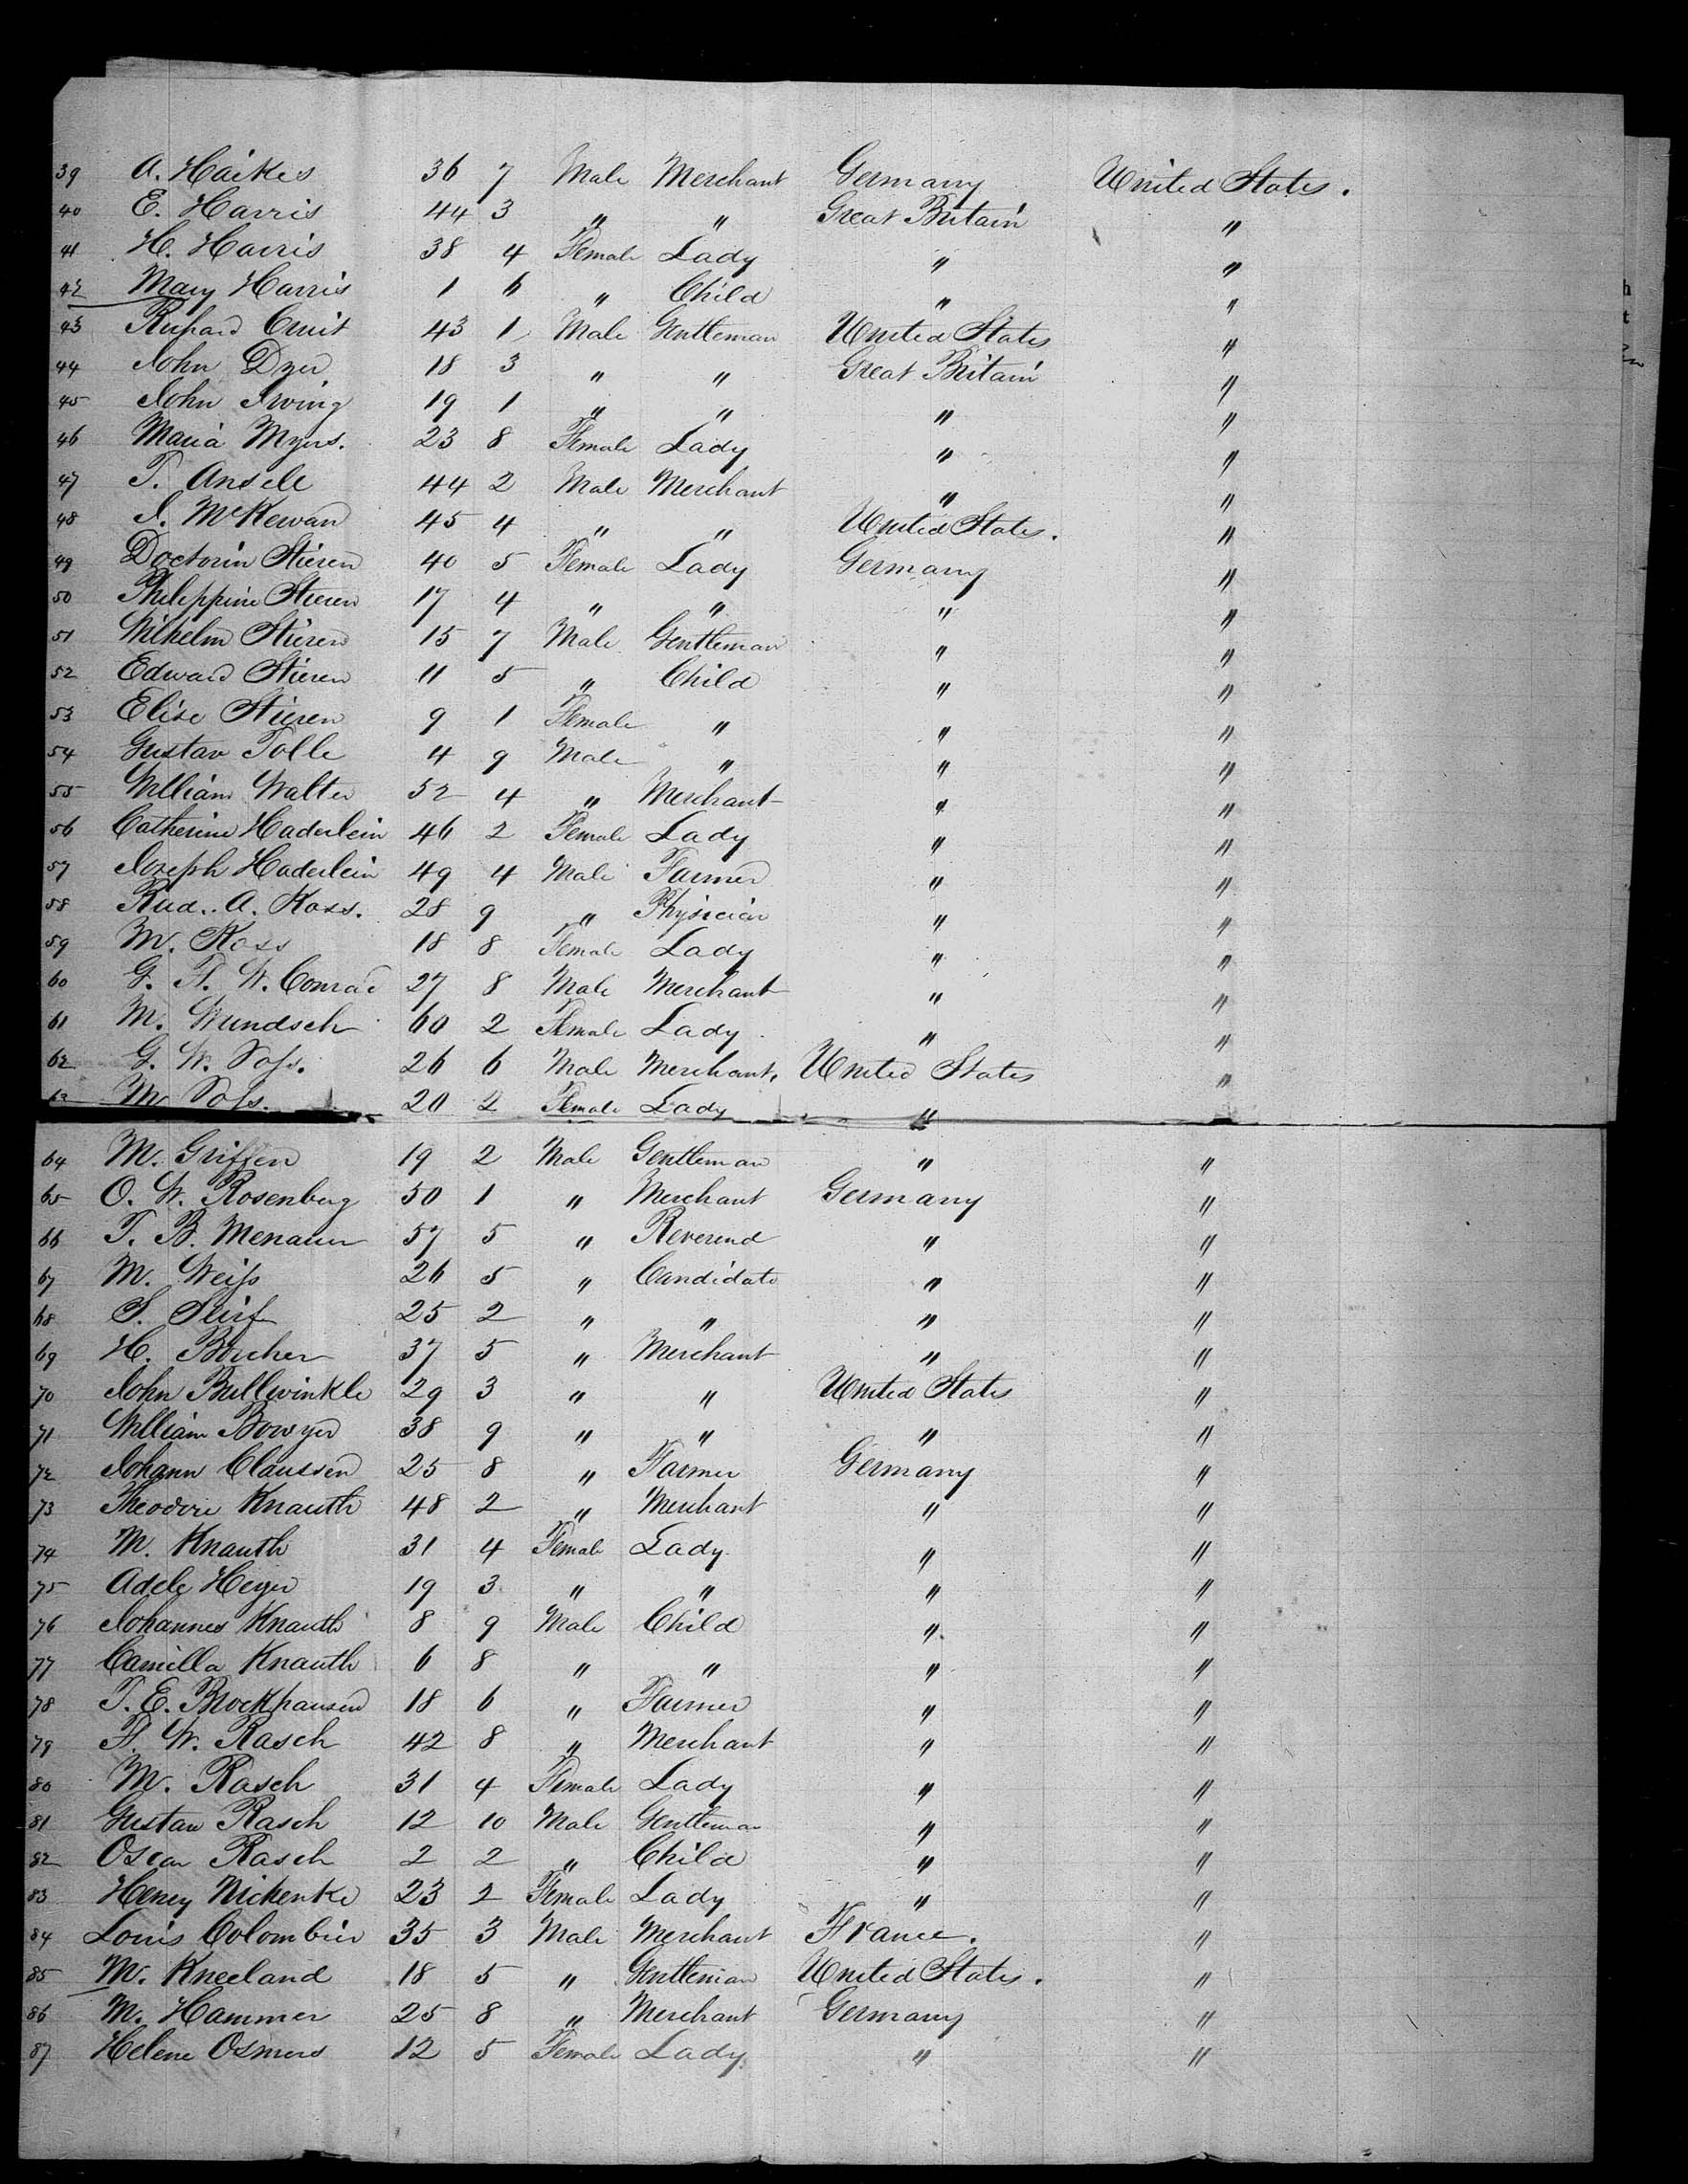 39 A. Haikes 36 7 Male Merchant Germany United States.
40 E. Harris 44 3 " " Great Britain "
41 H. Harris 38 4 Female Lady " "
42 Mary Harris 1 6 " Child " "
43 43 1 Male Gentleman United States "
44 John Dyer 18 3 " " Great Britain "
45 John Irving 19 1 " " " "
46 Maria Myers. 23 8 Female Lady " "
47 T. Ansele 44 2 Male Merchant " "
48 J. McKewan 45 4 " " United States. "
49 Doctorin Stieren 40 5 Female Lady Germany "
50 Philippine Stieren 17 4 " " " "
51 Wilhelm Stieren 15 7 Male Gentleman " "
52 Edward Stieren 11 5 " Child " "
53 Elise Stieren 9 1 Female " " "
54 Gustav Tolle 4 9 Male " " "
55 William Walter 52 4 " Merchant " "
56 Catherine Haderlein 46 2 Female Lady " "
57 Joseph Haderlein 49 4 Male Farmer " "
58 Rud. A. Koss. 28 9 " Physician " "
59 M. Koss 18 8 Female Lady " "
60 G. F. W. Conrad 27 8 Male Merchant " "
61 M. Wundsch 60 2 Female Lady " "
62 G. W. 26 6 Male Merchant, United States "
63 M. 20 2 Female Lady "
64 M. Griffen 19 2 Male Gentleman " "
65 O. W. Rosenberg 50 1 " Merchant Germany "
66 T. B. Menauer 57 5 " Reverend " "
67 M. Weiß 26 5 " Candidate " "
68 S. 25 2 " " " "
69 H. Borcher 37 5 " Merchant " "
70 John Bullwinkle 29 3 " " United States "
71 William Bowyer 38 9 " " " "
72 Johann Claussen 25 8 " Farmer Germany "
73 Theodore Knauth 48 2 " Merchant " "
74 M. Knauth 31 4 Female Lady " "
75 Adele Heyer 19 3 " " " "
76 Johannes Knauth 8 9 Male Child " "
77 Camilla Knauth 6 8 " " " "
78 T. E. Brockhausen 18 6 " Farmer " "
79 F. W. Rasch 42 8 " Merchant " "
80 M. Rasch 31 4 Female Lady " "
81 Gustav Rasch 12 10 Male Gentleman " "
82 Oscar Rasch 2 2 " Child " "
83 Henry Nickenke 23 2 Female Lady " "
84 Louis Colombier 35 3 Male Merchant France. "
85 M. Kneeland 18 5 " Gentleman United States. "
86 M. Hammer 25 8 " Merchant Germany "
87 Helene Osmers 12 5 Female Lady " "